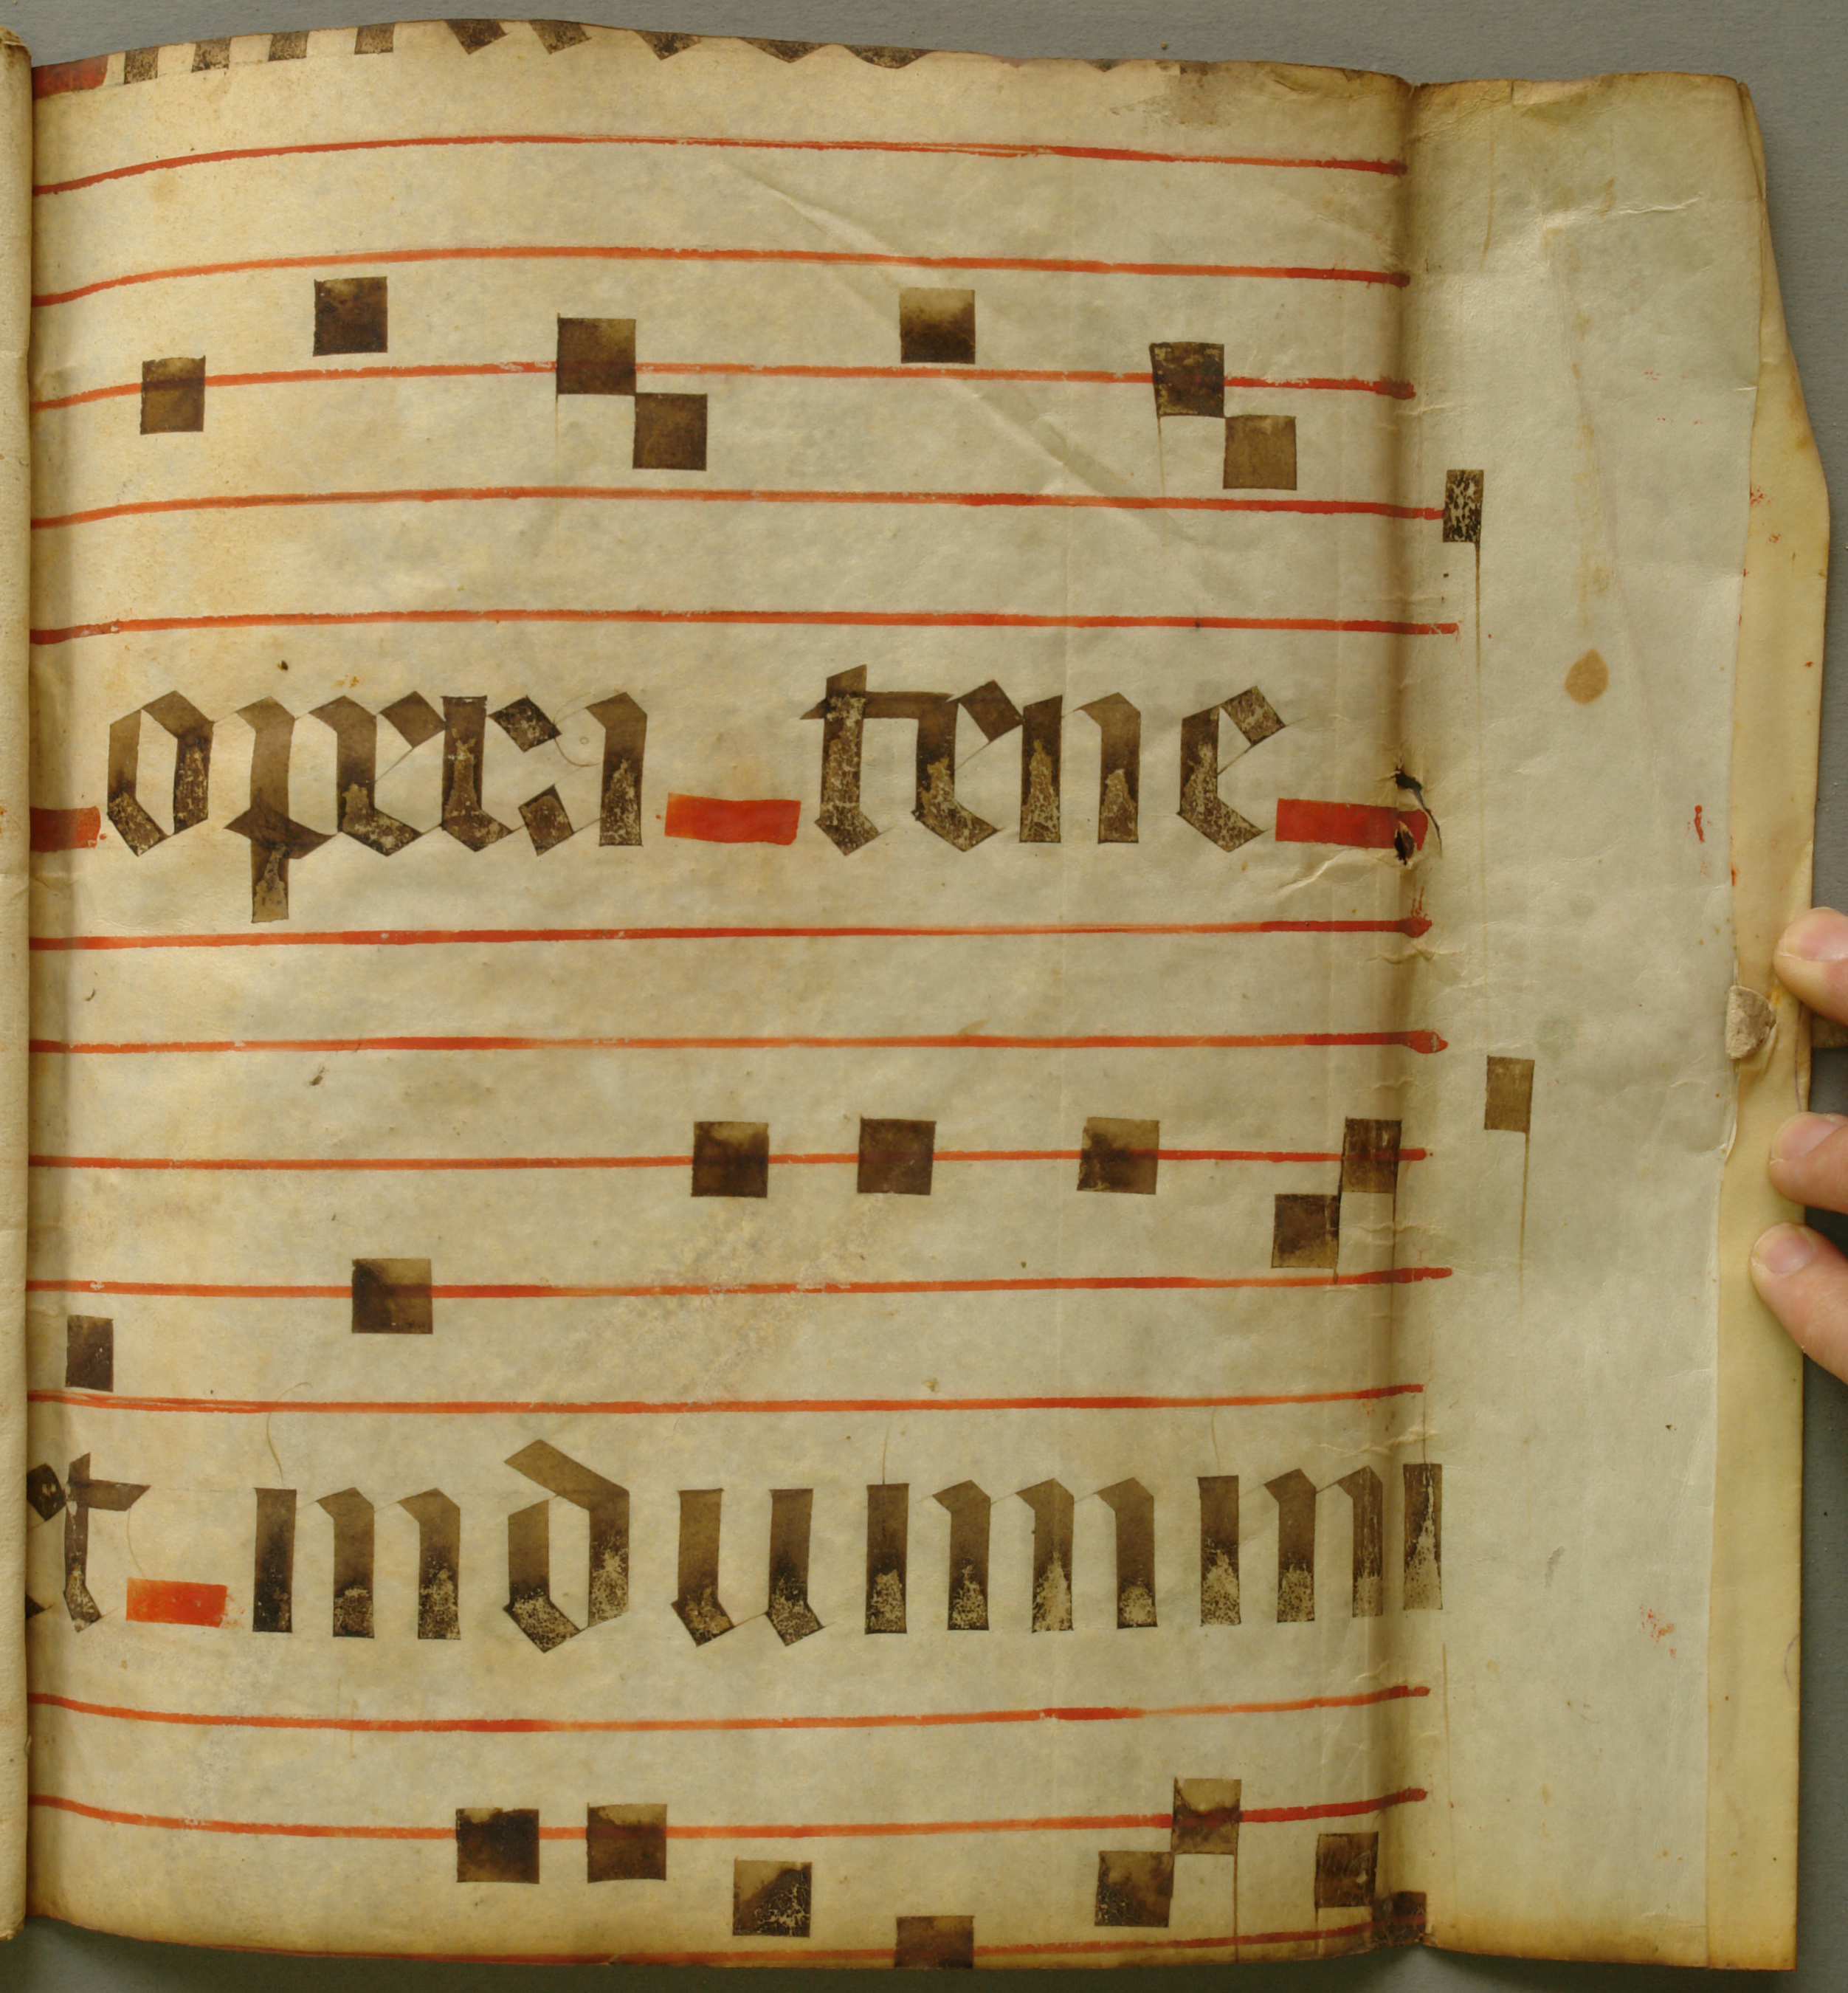 opera tene
et induimini